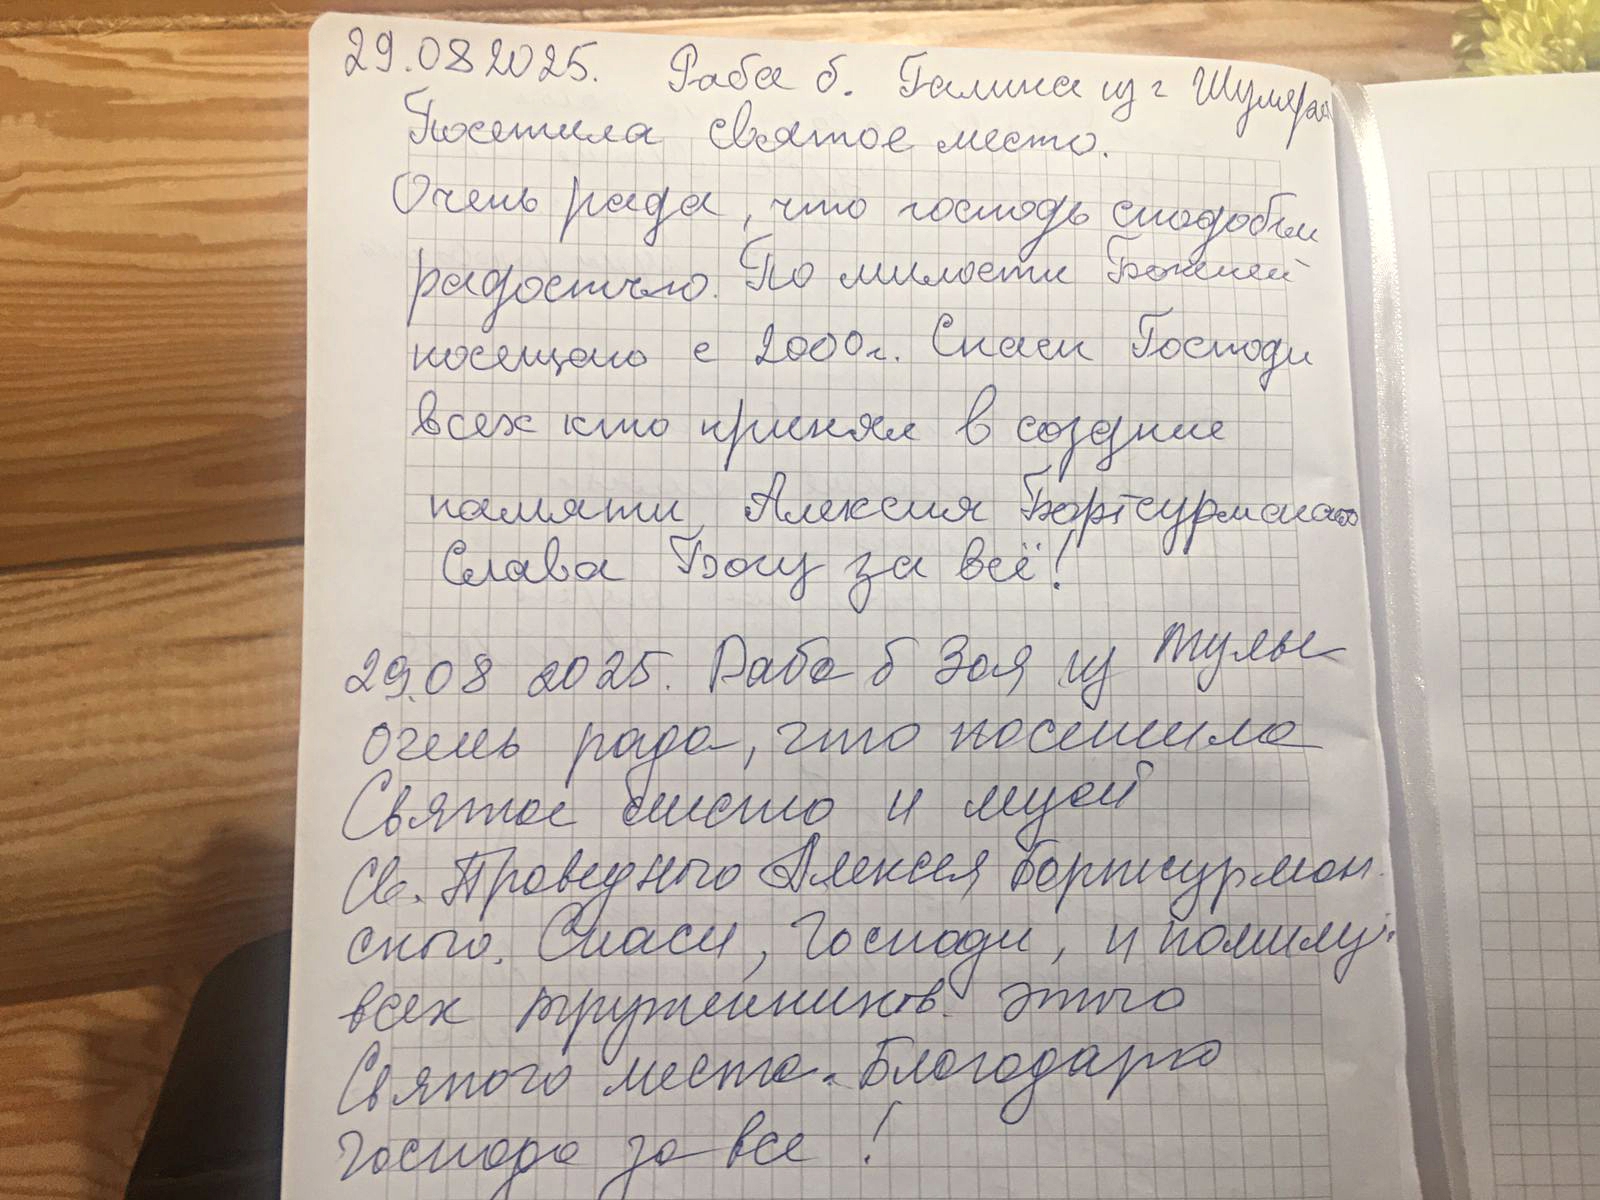 29.08 2025. Раба б. Галина из г Шумера
Посетила святое место.
Очень рада, что господь сподобил
радостью. По милости Божией
посещаю с 2000г. Спаси Господи
всех кто принял в создние
памяти Алексия Бортсурманско
Слава Богу за всё!
29.08 2025. Раба б Зоя из Тулы
очень рада, что посетила
Святое место и музей
Св. Праведного Алексея Бортсурман
ского. Спаси, Господи, и помилуй
всех тружеников этого
Святого места. Благодарю
Господа за все!